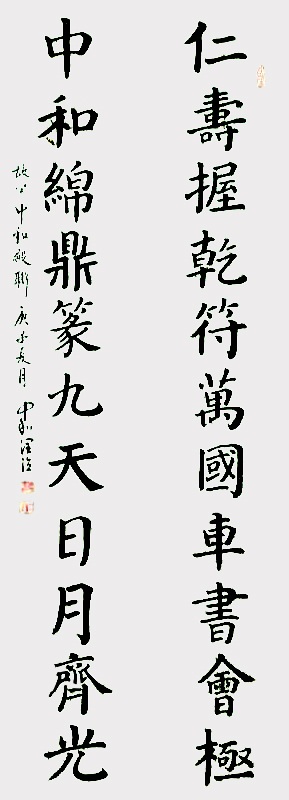 仁壽握乾符萬國車書會極
中和綿鼎篆九天日月齊光
故宮中和殿聯 庚子